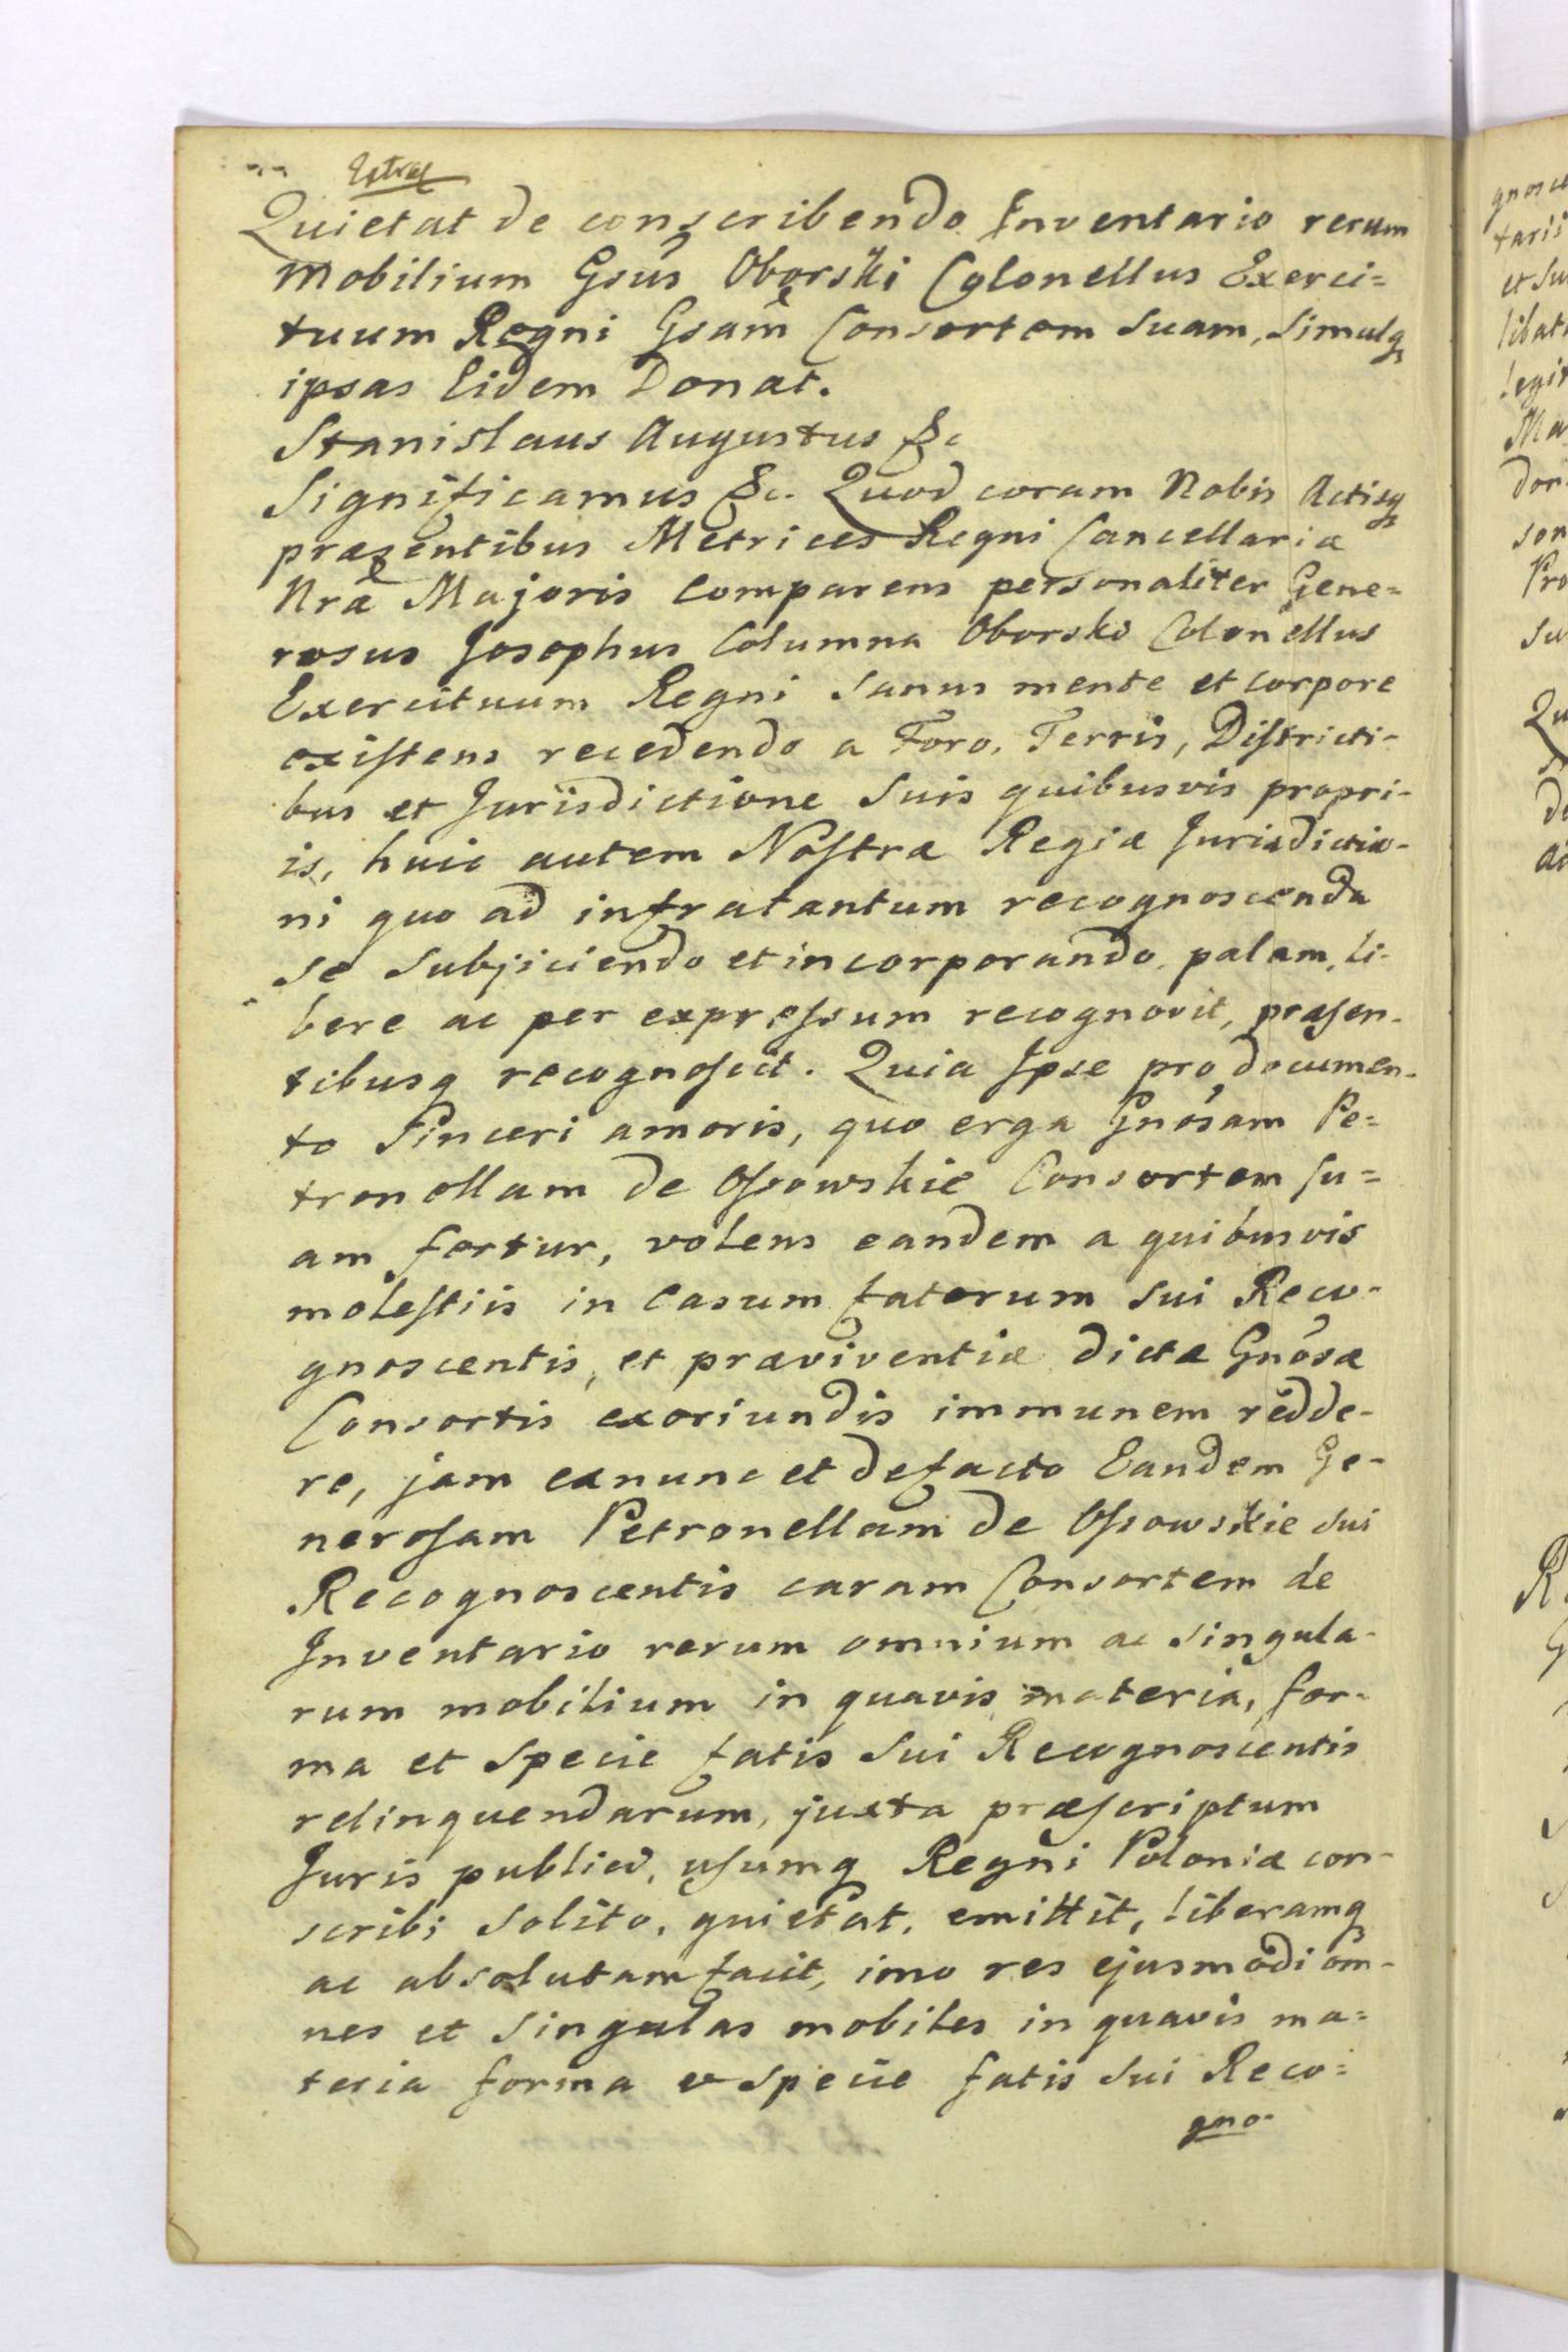 Extrac
Quietat de conscribendo Inventario rerum
mobilium Gsus Oborski Colonellus Exerci=
tuum Regni Gsam Consortem Suam, Simulq
ipsas Eidem Donat.
Stanislaus Augustus &c
Significamus &c. Quod coram Nobis Actisq
præsentibus Metrices Regni Cancellariæ
Nræ Majoris Comparens personaliter Gene=
rosus Josephus Columna Oborski Colonellus
Exercituum Regni Sanus mente et corpore
existens recedendo a Foro, Terris, Districti-
bus et Jurisdictione Suis quibusvis propri-
is, huic autem Nostræ Regiæ Jurisdictio-
ni quo ad infratantum recognoscenda
se Subjiciendo et incorporando, palam, li-
bere ac per expressum recognovit, præsen-
tibusq recognoscit. Quia Ipse pro documen-
to Sinceri amoris, quo erga Gnosam Pe=
tronellam de Ossowskie Consortem su=
am fertur, volens eandem a quibusvis
molestiis in Casum fatorum Sui Reco-
gnoscentis, et præviventiæ dictæ Gnosæ
Consortis exoriundis immunem redde-
re, jam exnunc et defacto Eandem Ge-
nerosam Petronellam de Ossowskie Sui
Recognoscentis caram Consortem de
Inventario rerum omnium ac Singula-
rum mobilium in quavis materia, for-
ma et Specie fatis Sui Recognoscentis
relinquendarum, juxta præscriptum
Juris publici, usumq Regni Poloniæ con-
scribi Solito, quietat, emittit, liberamq
ac absolutam facit, imo res ejusmodi om-
nes et Singulas mobiles in quavis ma=
teria forma et Specie fatis Sui Reco=
gno-